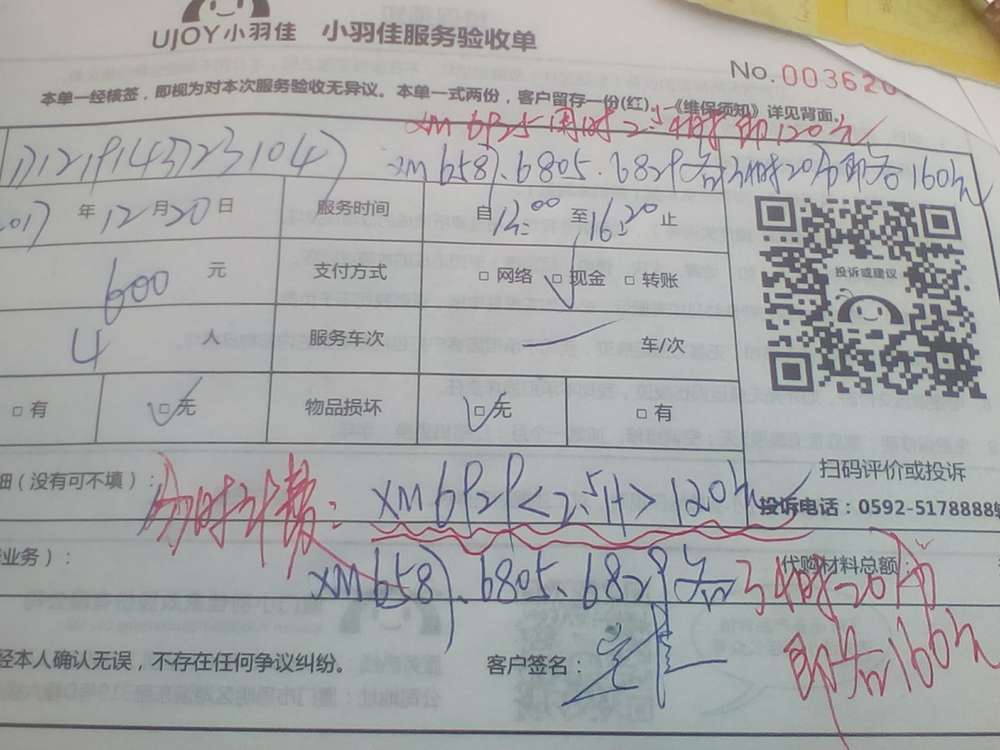 UJOY小羽佳 小羽佳服务验收单
No. 003620
本单一经核签，即视为对本次服务验收无异议。本单一式两份，客户留存一份(红)，《维保须知》详见背面。
用时2.5小时即120元
XM6587、6805、6829各3小时20分即各160元
2017年12月20日 服务时间 自12:00至16:20止
600元 支付方式 □网络 □现金 □转账
投诉或建议
4人 服务车次 车/次
□有 □无 物品损坏 □无 □有
扫码评价或投诉
细（没有可不填）：
分时计费：XM6929<2.5H>120元
投诉电话：0592-5178888转
业务）： 代购材料总额：
XM6587、6805、6829各3小时20分
即各160元
经本人确认无误，不存在任何争议纠纷。 客户签名：